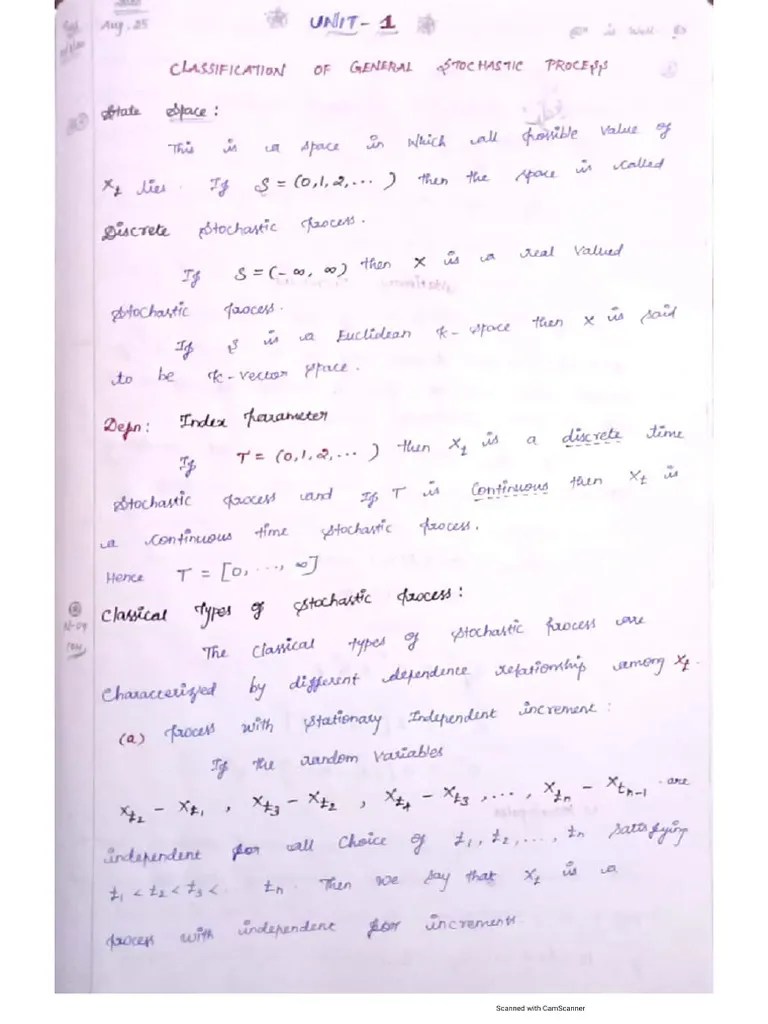 Aug, 25 UNIT - 1
CLASSIFICATION OF GENERAL STOCHASTIC PROCESS
State Space :
This is a space in which all possible value of
Xt lies. If S = (0,1,2,... ) then the space is called
Discrete Stochastic Process.
If S = (-∞, ∞) then X is a real valued
Stochastic process.
If S is a Euclidean k- space then X is said
to be k-vector space.
Defn: Index parameter
If T = (0,1,2,... ) then Xt is a discrete time
Stochastic process and If T is Continuous then Xt is
a continuous time stochastic process.
Hence T = [0, ..., ∞]
Classical Types of Stochastic Process :
N-04
10M
The Classical types of stochastic process are
Characterized by different dependence relationship among Xt.
(a) Process with Stationary Independent increment :
If the random variables
Xt2 - Xt1 , Xt3 - Xt2 , Xt4 - Xt3 ,..., Xtn - Xtn-1 are
independent for all Choice of t1, t2, ..., tn satisfying
t1 < t2 < t3 < tn. Then we say that Xt is a
process with independent for increments.
Scanned with CamScanner